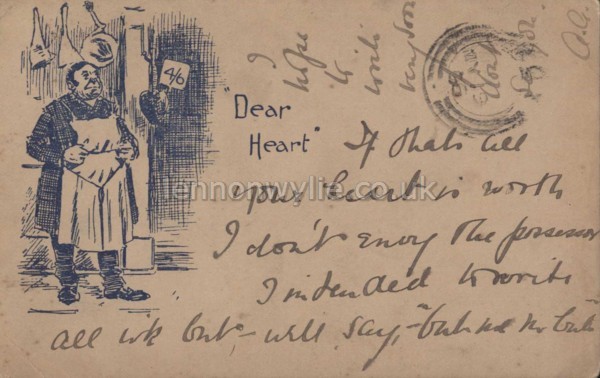 4/6
"Dear
Heart"
I
hope
to
write
very soon
If thats all
your heart is worth
I don't envy the possessor
I intended to write
all wk but - will say, "but me no buts"
ennonwylie.co.uk